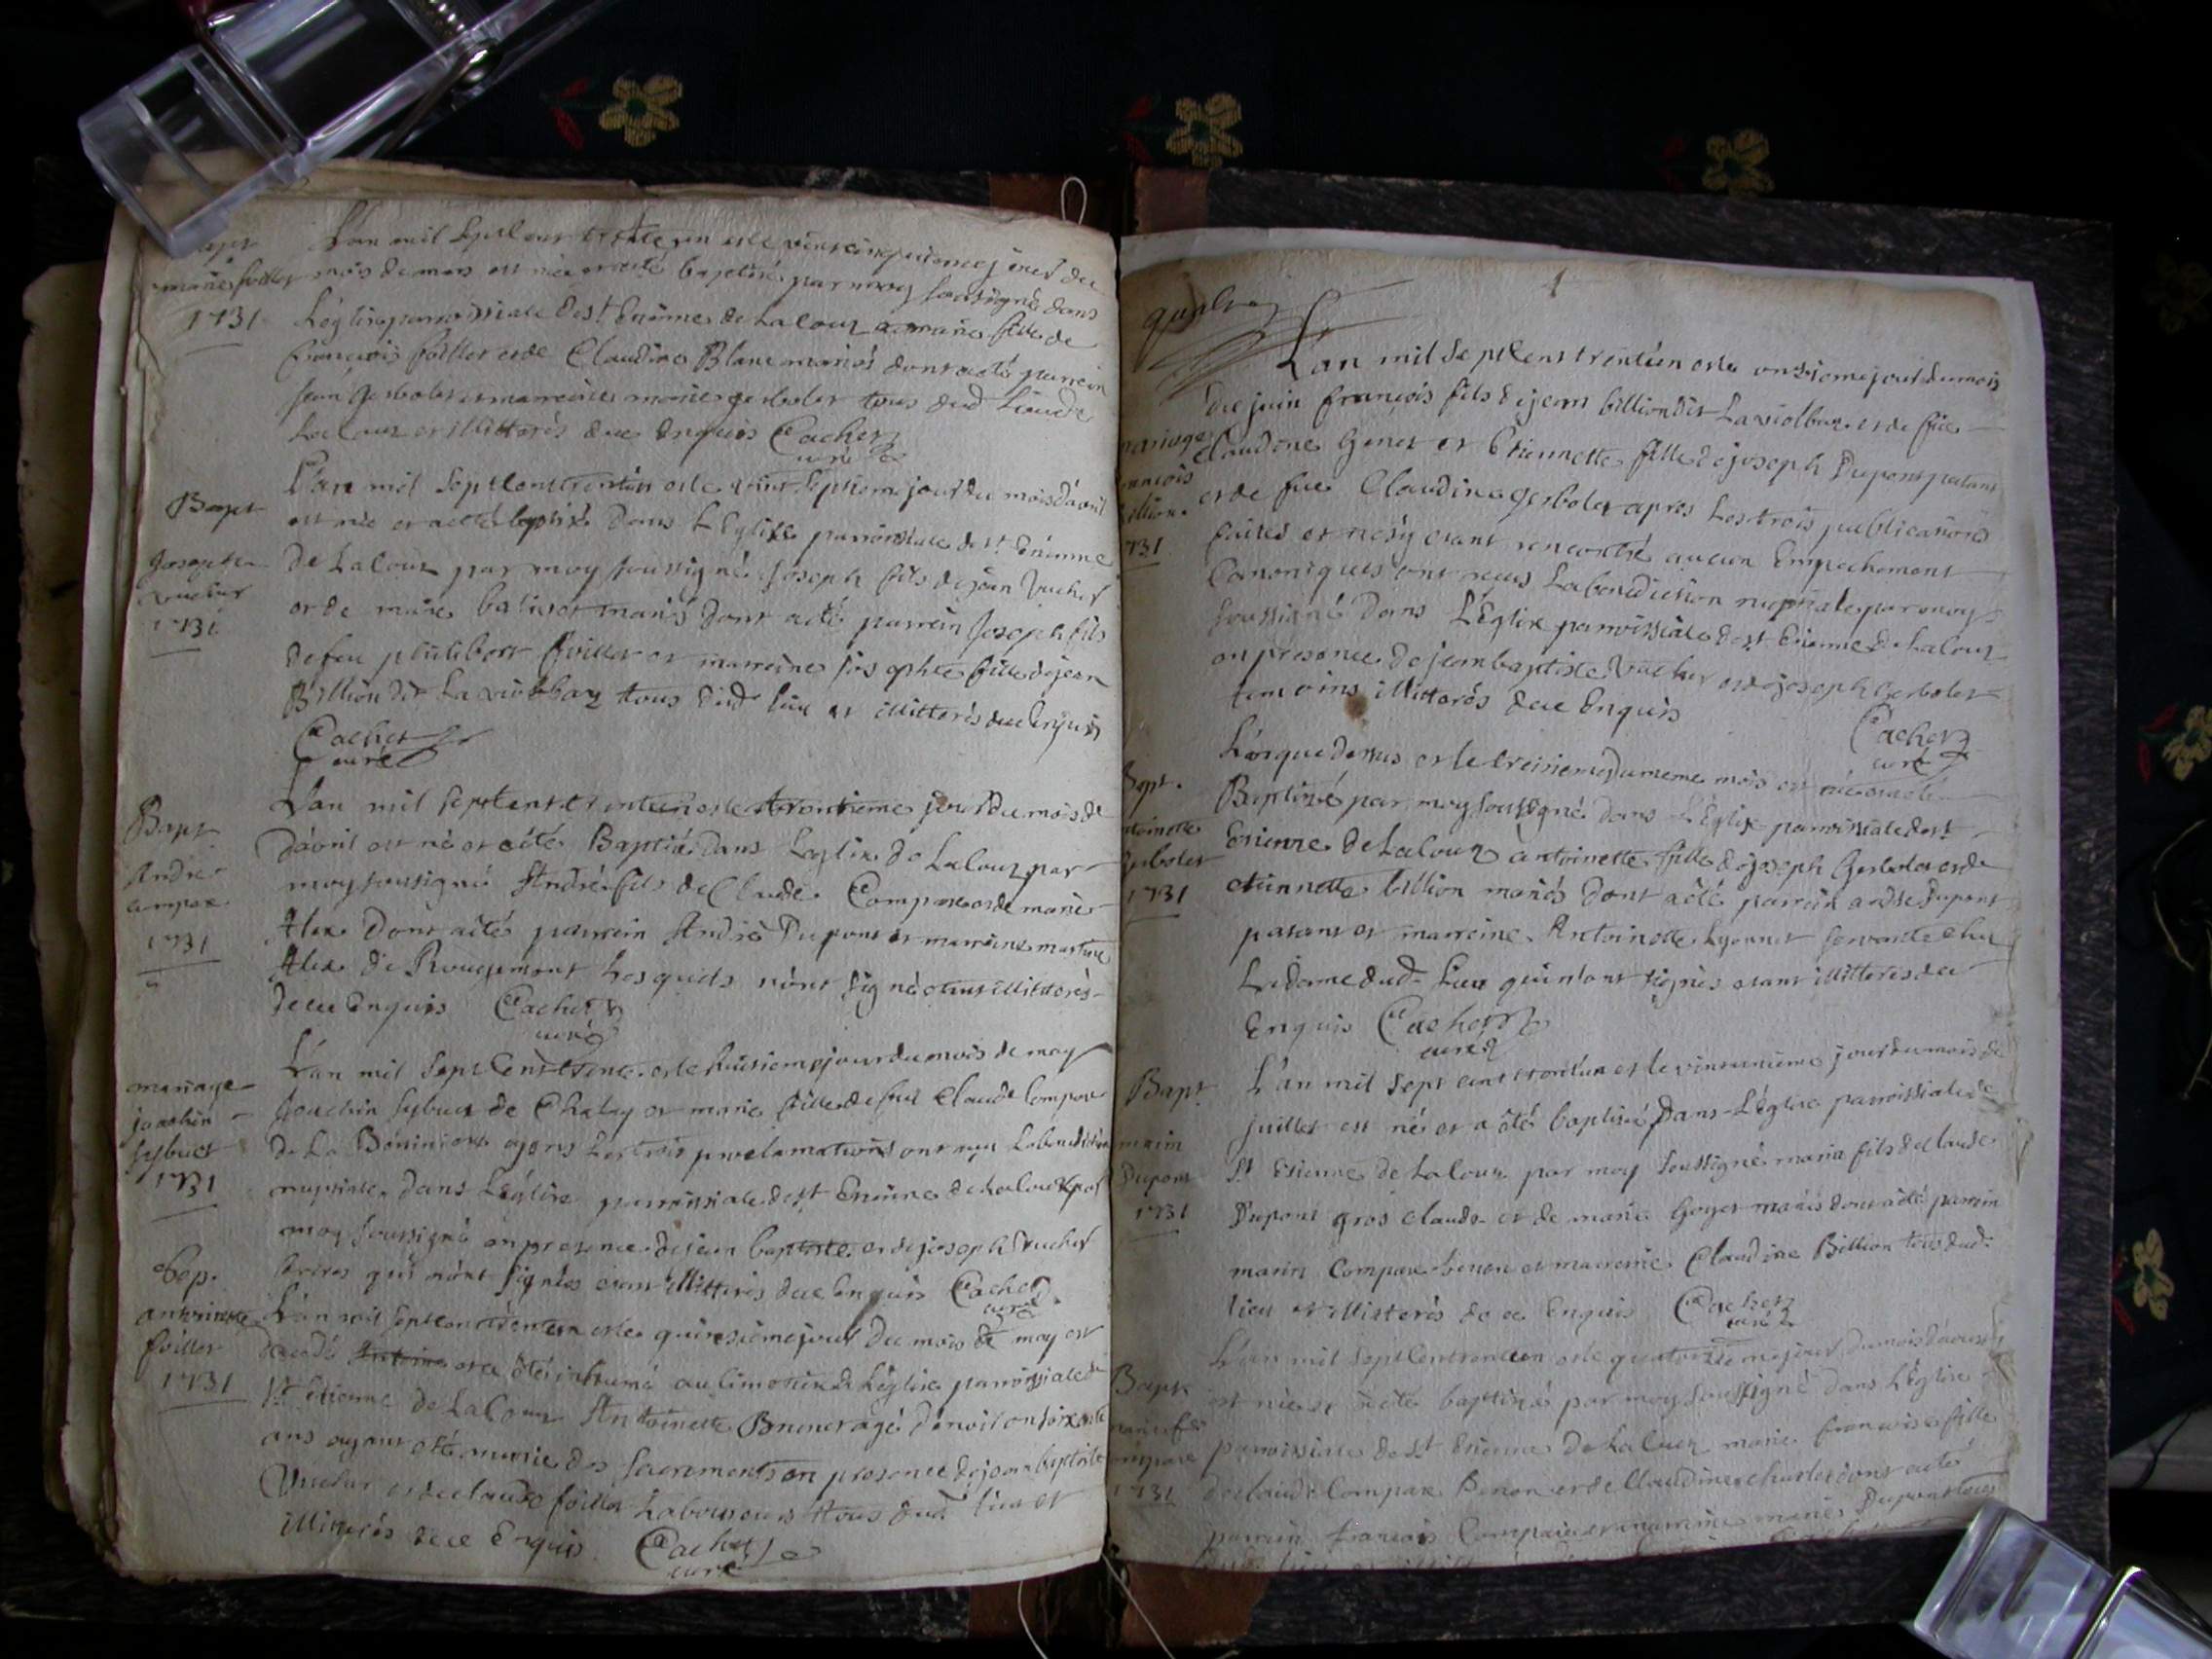 Bapt
marie foillet
1731
L'an mil sept cent trente un et le vint cinquieme jour du
mois de mars est née et a eté baptisé par moy soussigné dans
L'église parroissiale de st Etienne de Lalouz marie fille de
françois foillet et de Claudine Blanc mariés dont a eté parrein
jean gerbolet et marreine marie gerbolet tous dud lieu de
Lalouz et illitterés de ce Enquis Cachet
curé
Bapt
Josepte
Vuchet
1731
L'an mil sept cent trente un et le vint septieme jour du mois d'avril
est née et a eté baptisé dans L'Eglise parroissiale de st Etienne
de Lalouz par moy soussigné Joseph fils de jean Vuchet
et de marie mariés dont a eté parrein Joseph fils
de feu philibert foillet et marreine josephte fille de jean
Billion dit La violbaz tous dud lieu et illitterés de ce Enquis
Cachet
curé
Bapt
André
compax
1731
L'an mil sept cent trente un et le trentieme jour du mois de
d'avril est né et a eté Baptisé dans L'eglise de Lalouz par
moy soussigné André fils de Claude Compax et de marie
Alex dont a eté parrein André Dupont et marreine
Alex de Rougemont Lesquels n'ont signé etant illitterés
de ce Enquis Cachet
curé
mariage
joachin
sybuet
1731
L'an mil sept Cent trente et le huitieme jour du mois de may
Joachin sybuet de Chaley et marie fille de feu Claude Compax
de La apres Les trois proclamations ont reçu La benediction
nuptiale dans L'église parroissiale de st Etienne de Lalouz par
moy soussigné en presence de jean baptiste et de joseph Vuchet
freres qui n'ont signés etant illitterés de ce enquis Cachet
curé
Sep.
antoinette
foillet
1731
L'an mil sept cent trente un et le quinsieme jour du mois de may est
decedé et a eté inhumé au cimetiere de L'église parroissiale de
St Etienne de Lalouz Antoinette agé d'environ soixante
ans ayant eté munie des sacrements en presence de jean baptiste
Vuchet et de claude foillet Laboureurs tous dud lieu et
illitterés de ce Enquis Cachet
curé
quatre
4
mariage
françois
billion
1731
L'an mil sept cent trente un et le onsieme jour du mois
de juin françois fils de jean billion dit La violbaz et de fue
Claudone Genet et Etiennette fille de joseph Dupont patant
et de fue Claudine gerbolet apres Les trois publications
faites et n'esy etant rencontré aucun Empechement
Canoniques ont reçus La benediction nuptiale par moy
soussigné dans L'Eglise parroissiale de st Etienne de Lalouz
en presence de jean baptiste Vuchet et de joseph Gerbolet
temoins illitterés de ce Enquis
Cachet
curé
Bapt.
antoinette
Gerbolet
1731
L'an que dessus et le treisieme du meme mois est née et a eté
Baptisé par moy soussigné dans L'Eglise parroissiale de st
Etienne de Lalouz antoinette fille de joseph Gerbolet et de
etiennette billion mariés dont a eté parrein andré Dupont
patant et marreine Antoinette Lyonnet servante chez
La dame dud Lieu qui n'ont signés etant illitterés de ce
Enquis Cachet
curé
Bapt
marin
Dupont
1731
L'an mil sept cent trente un et le vint unieme jour du mois de
juillet est né et a été baptisé Dans L'église parroissiale de
St Etienne de Lalouz par moy soussigné marin fils de claude
Dupont gros claude et de marie Goyet mariés dont a eté parrein
marin Compax benon et marreine Claudine Billion tous dud
lieu et illiterés de ce Enquis Cachet
curé
Bapt
marie fse
compax
1731
L'an mil sept Cent trente un et le quatorsieme jour du mois d'aoust
est née et a eté baptisée par moy soussigné dans L'église
parroissiale de St Etienne de Lalouz marie françoise fille
de claude Compax Benon et de Claudine dont a eté
parrein françois Compax et marreine marie Dupont tous